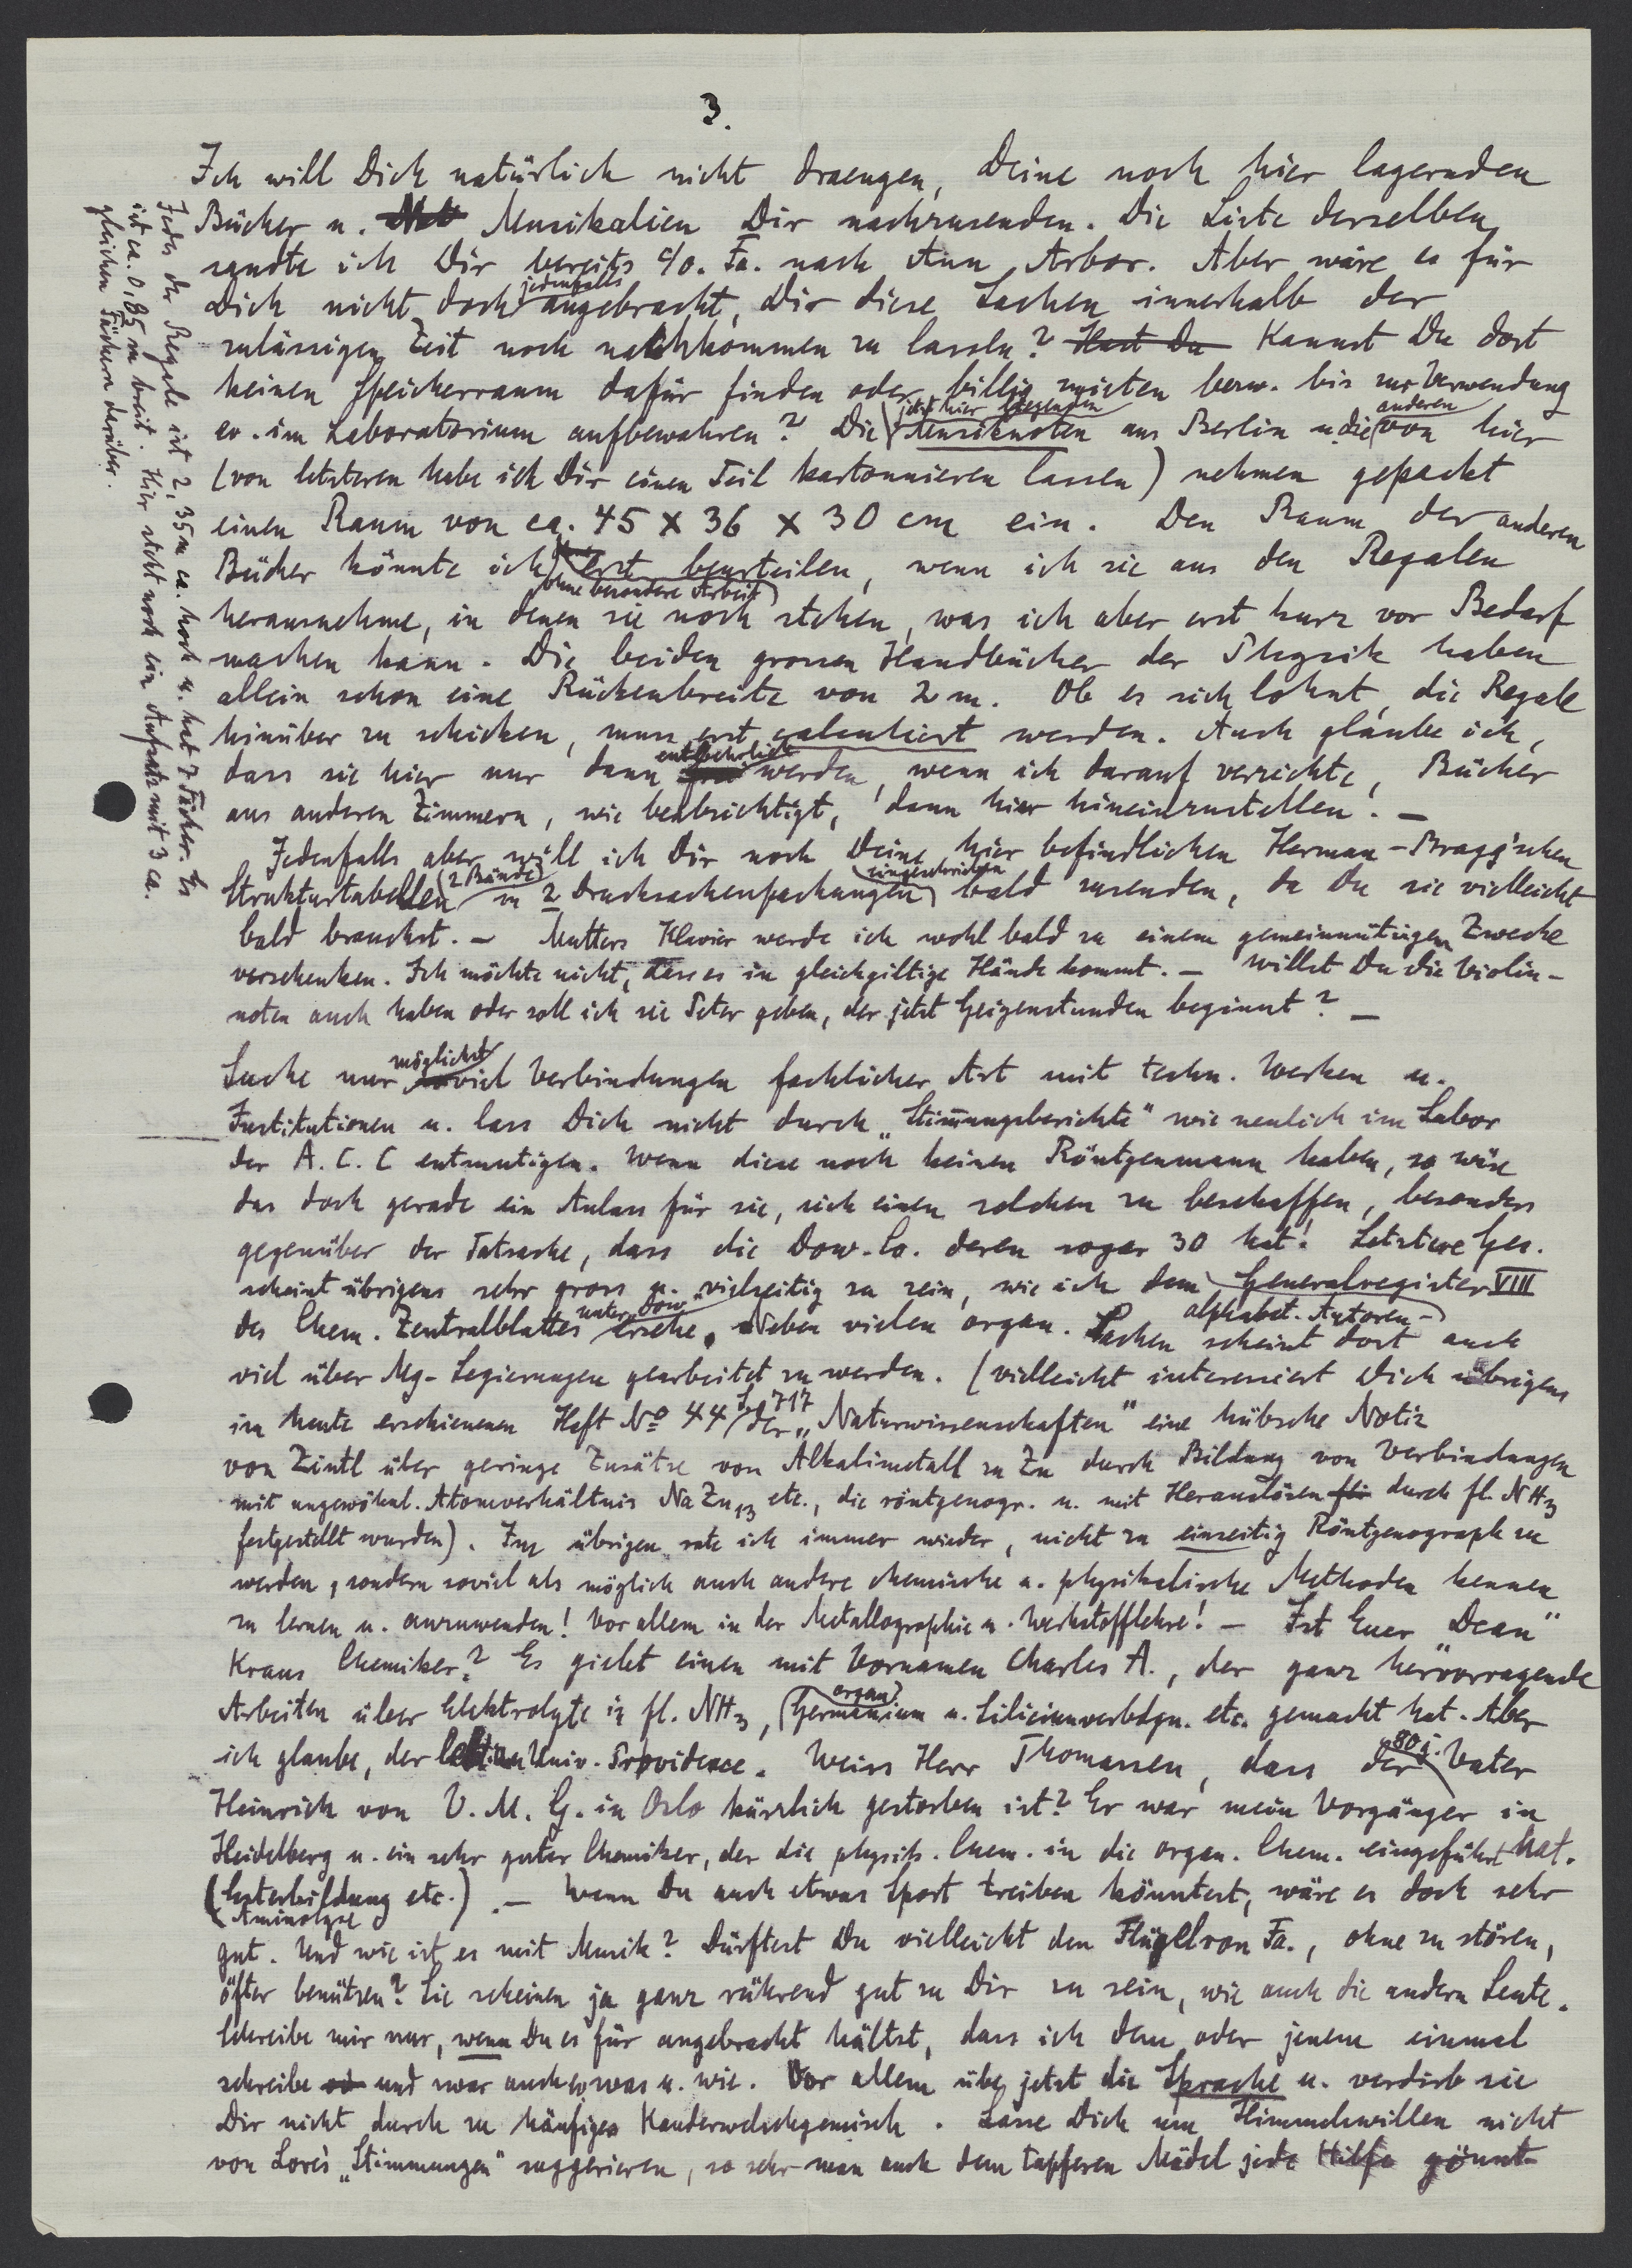 3.
Ich will Dich natürlich nicht draengen, Deine noch hier lagernden
Bücher u. Musikalien Dir nachzusenden. Die Liste derselben
sandte ich Dir bereits c/o. Fa. nach Ann Arbor. Aber wäre es für
Dich nicht doch jedenfalls angebracht, Dir diese Sachen innerhalb der
zulässigen Zeit noch nachkommen zu lassen? Hast Du Kannst Du dort
keinen Speicherraum dafür finden oder billig mieten bezw. bis zur Verwendung
ev. im Laboratorium aufbewahren? Die jetzt hier liegenden Musiknoten aus Berlin u. die anderen von hier
(von letzteren habe ich Dir einen Teil kartonnieren lassen) nehmen gepackt
einen Raum von ca. 45 x 36 x 30 cm ein. Den Raum der anderen
Bücher könnte ich ohne besondere Arbeit erst beurteilen, wenn ich sie aus den Regalen
herausnehme, in denen sie noch stehen, was ich aber erst kurz vor Bedarf
machen kann. Die beiden grossen Handbücher der Physik haben
allein schon eine Rückenbreite von 2 m. Ob es sich lohnt, die Regale
hinüber zu schicken, muss erst calculiert werden. Auch glaube ich,
dass sie hier nur dann entbehrlich werden, wenn ich darauf verzichte, Bücher
aus anderen Zimmern, wie beabsichtigt, dann hier hineinzustellen. –
Jedenfalls aber will ich Dir noch Deine hier befindlichen Herman-Bragg'schen
Strukturtabellen (2 Bände) in 2 Drucksachenpackungen (eingeschrieben) bald zusenden, da Du sie vielleicht
bald brauchst. – Mutters Klavier werde ich wohl bald zu einem gemeinnützigen Zwecke
verschenken. Ich möchte nicht, dass es in gleichgiltige Hände kommt. – Willst Du die Violin-
noten auch haben oder soll ich sie Peter geben, der jetzt Geigenstunden beginnt? –
Suche nur möglichst viel Verbindungen fachlicher Art mit techn. Werken u.
Institutionen u. lass Dich nicht durch „Stimmungsberichte" wie neulich im Labor
der A. C. C entmutigen. Wenn diese noch keinen Röntgenmann haben, so wäre
das doch gerade ein Anlass für sie, sich einen solchen zu beschaffen, besonders
gegenüber der Tatsache, dass die Dow. Co. deren sogar 30 hat! Letztere Ges.
scheint übrigens sehr gross u. vielseitig zu sein, wie ich dem alphabet. Autoren- Generalregister VIII
des Chem. Zentralblattes unter Dow ersehe. Neben vielen organ. Sachen scheint dort auch
viel über Mg-Legierungen gearbeitet zu werden. (Vielleicht interessiert Dich übrigens
im heute erschienenen Heft No 44 S. 717 der „Naturwissenschaften" eine hübsche Notiz
von Zintl über geringe Zusätze von Alkalimetall zu Zn durch Bildung von Verbindungen
mit ungewöhnl. Atomverhältnis NaZn13 etc., die röntgenogr. u. mit Herauslösen durch fl. NH3
festgestellt wurden). Im übrigen rate ich immer wieder, nicht zu einseitig Röntgenograph zu
werden, sondern soviel als möglich auch andere chemische u. physikalische Methoden kennen
zu lernen u. anzuwenden! Vor allem in der Metallographie u. Werkstofflehre! – Ist Euer „Dean"
Kraus Chemiker? Es giebt einen mit Vornamen Charles A., der ganz hervorragende
Arbeiten über Elektrolyte in fl. NH3, (organ.) Germanium u. Siliciumverbdgn. etc. gemacht hat. Aber
ich glaube, der Univ. Providence. Weiss Herr Thomassen, dass der 80 j. Vater
Heinrich von V. M. G. in Oslo kürzlich gestorben ist? Er war mein Vorgänger in
Heidelberg u. ein sehr guter Chemiker, der die physik. Chem. in die organ. Chem. eingeführt hat.
(Esterbildung etc.) Aminolyse . – Wenn Du auch etwas Sport treiben könntest, wäre es doch sehr
gut. Und wie ist es mit Musik? Dürftest Du vielleicht den Flügel von Fa., ohne zu stören,
öfter benützen? Sie scheinen ja ganz rührend gut zu Dir zu sein, wie auch die andern Leute.
Schreibe mir nur, wenn Du es für angebracht hältst, dass ich dem oder jenem einmal
schreibe und zwar auch was u. wie. Vor allem übe jetzt die Sprache u. verdirb sie
Dir nicht durch zu häufiges Kauderwelschgemisch. Lasse Dich um Himmelswillen nicht
von Lore's „Stimmungen" suggerieren, so sehr man auch dem tapferen Mädel jede Hilfe gönnt
Jedes der Regale ist 2,35 m ca. hoch u. hat 7 Fächer. Es
ist ca. 0,85 m breit. Hier steht noch ein Aufsatz mit 3 ca.
gleichen Fächern darüber.